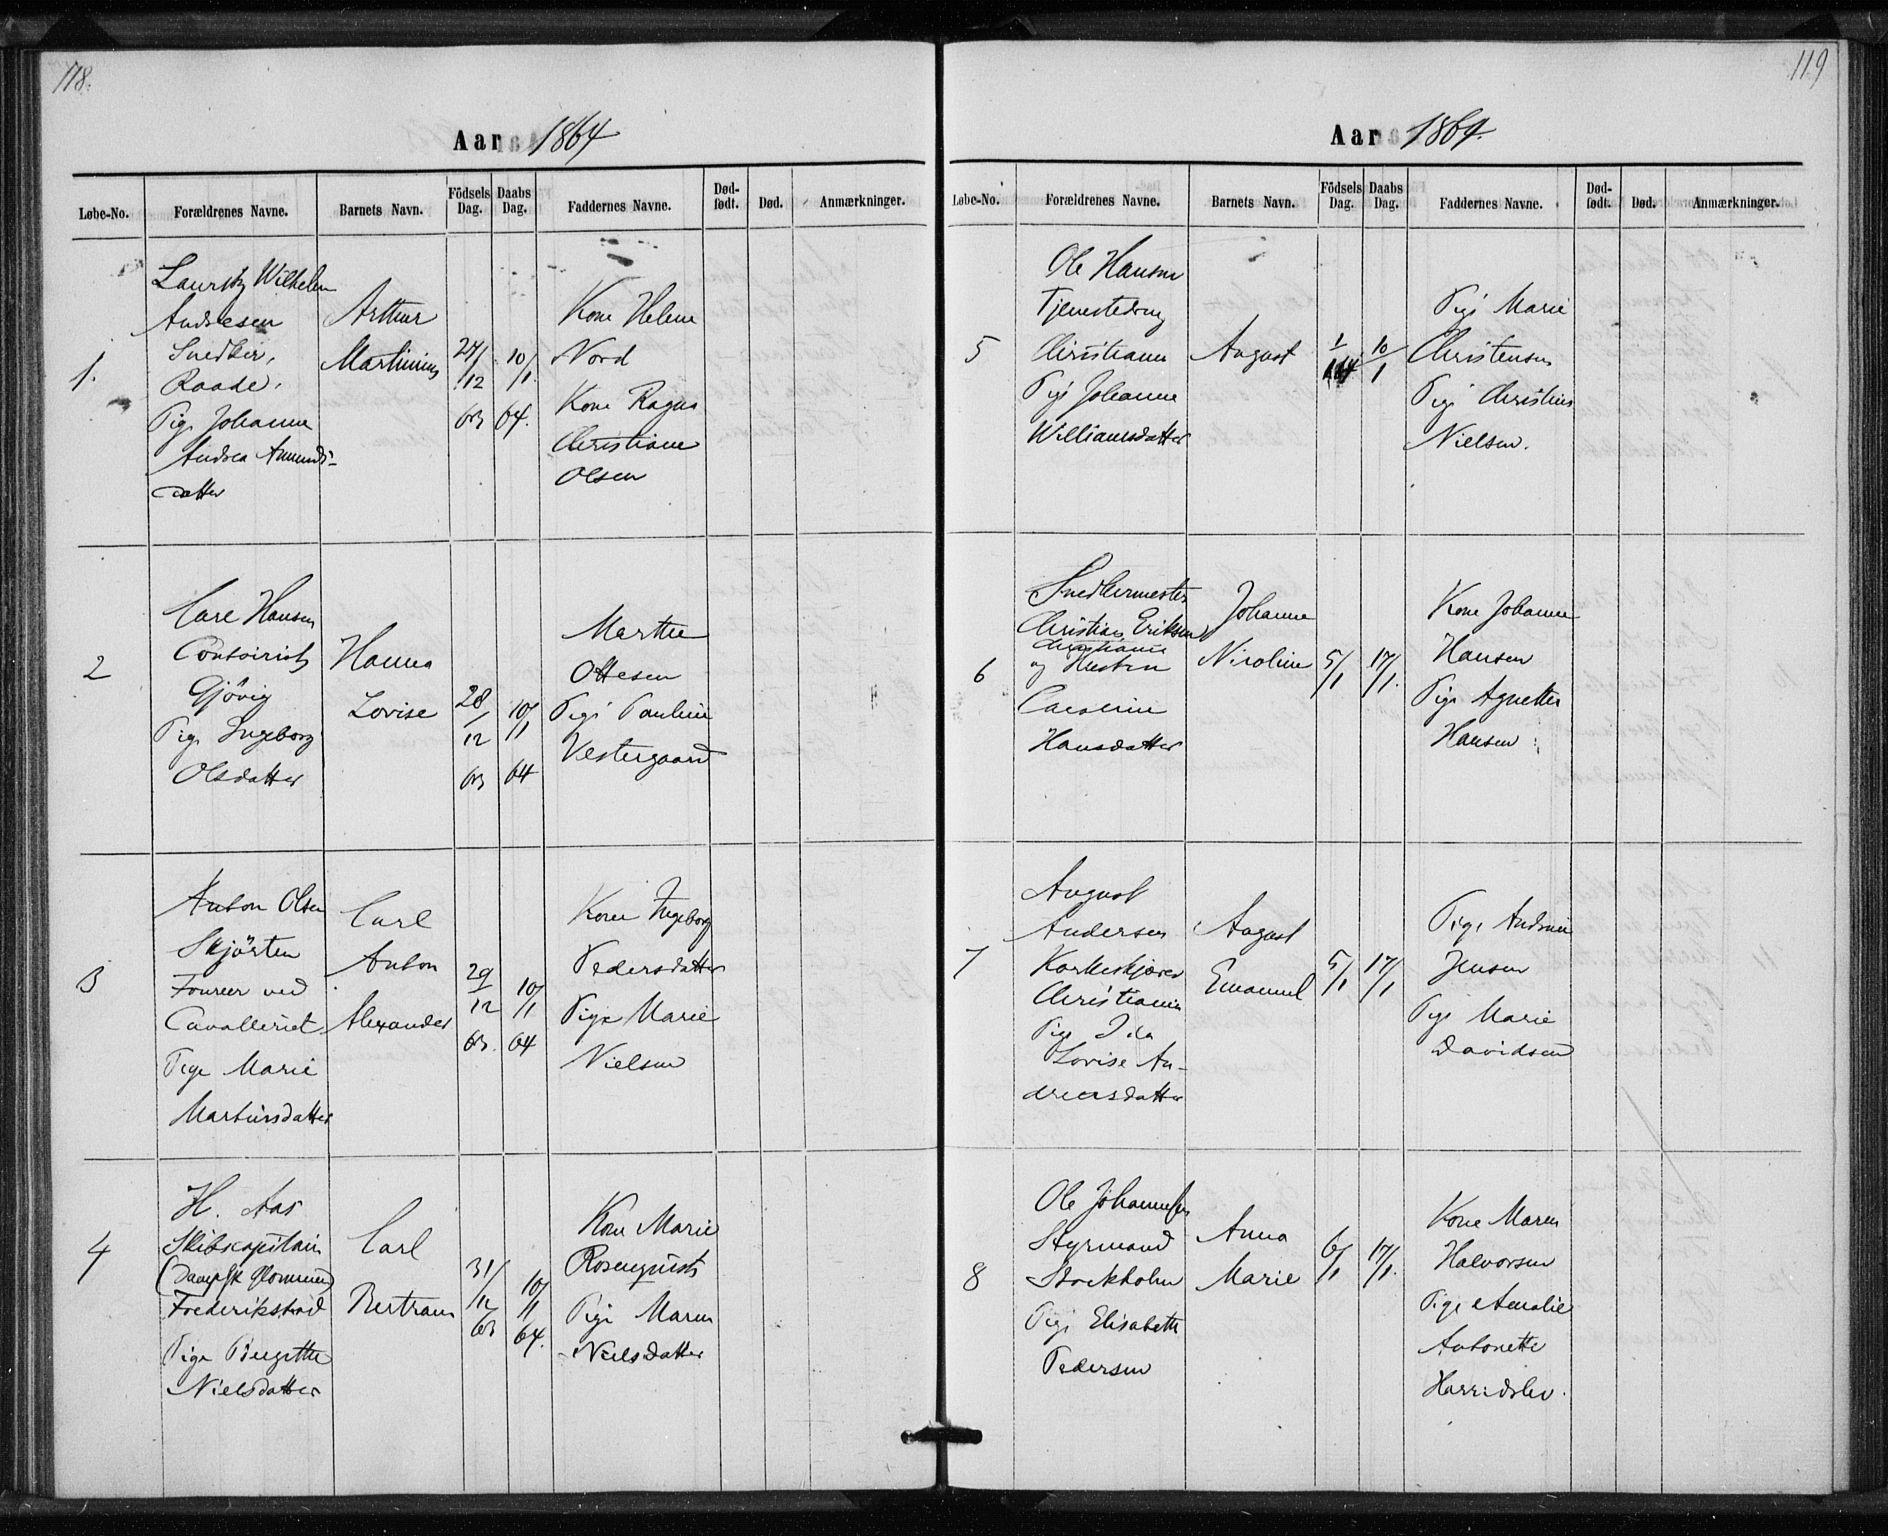 118.
Aar 1864
Løbe-No. Forældrenes Navne. Barnets Navn. Födsels Dag. Daabs Dag. Faddernes Navne. Død-født. Død. Anmærkninger.
1.
Lauritz Wilhelm
Andresen
Snedker,
Raade,
Pige Johanne
Andrea Amunds-
datter
Arthur
Martinius
24/12 63
10/1 64.
Kone Helene
Nord
Kone Ragna
Christiane
Olsen
2
Carl Hansen
Contoirist
Gjövig
Pige Ingeborg
Olsdatter
Hanna
Lovise
28/12 63
10/1 64
Marthe
Ottesen
Pige Pauline
Vestergaard
3
Anton Olsen
Skjörten
Foureer ved
Cavalleriet
Pige Marie
Martinsdatter
Carl
Anton
Alexander
29/12 63.
10/1 64
Kone Ingeborg
Pedersdatter
Pige Marie
Nielsen
4
H. Aas
Skibscapitain
(Dampsk Glommen)
Frederikstad
Pige Birgitte
Nielsdatter
Carl
Bertram
31/12 63
10/1 64.
Kone Marie
Rosenquist
Pige Maren
Nielsdatter
119
Aar 1864.
Løbe-No. Forældrenes Navne. Barnets Navn. Födsels Dag. Daabs Dag. Faddernes Navne. Død-født. Død. Anmærkninger.
5
Ole Hansen
Tjenestedreng
Christiania
Pige Johanne
Williamsdatter
August
10/1
Pige Marie
Christensen
Pige Christine
Nielsen.
6
Snedkermester
Christian Eriksen
Christiania
og Hustru
Caroline
Hansdatter
Johanne
Nicoline
5/1
17/1.
Kone Johanne
Hansen
Pige Agnethe
Hansen
7
August
Andersen
Korkeskjærer
Christiania
Pige Ida
Lovise An-
dreasdatter
August
Emanuel
5/1
17/1
Pige Andrine
Jensen
Pige Marie
Davidsen
8
Ole Johannesen
Styrmand
Stockholm
Pige Elisabeth
Pedersen
Anna
Marie
6/1
17/1.
Kone Maren
Halvorsen
Pige Amalie
Antonette
Harridslev.